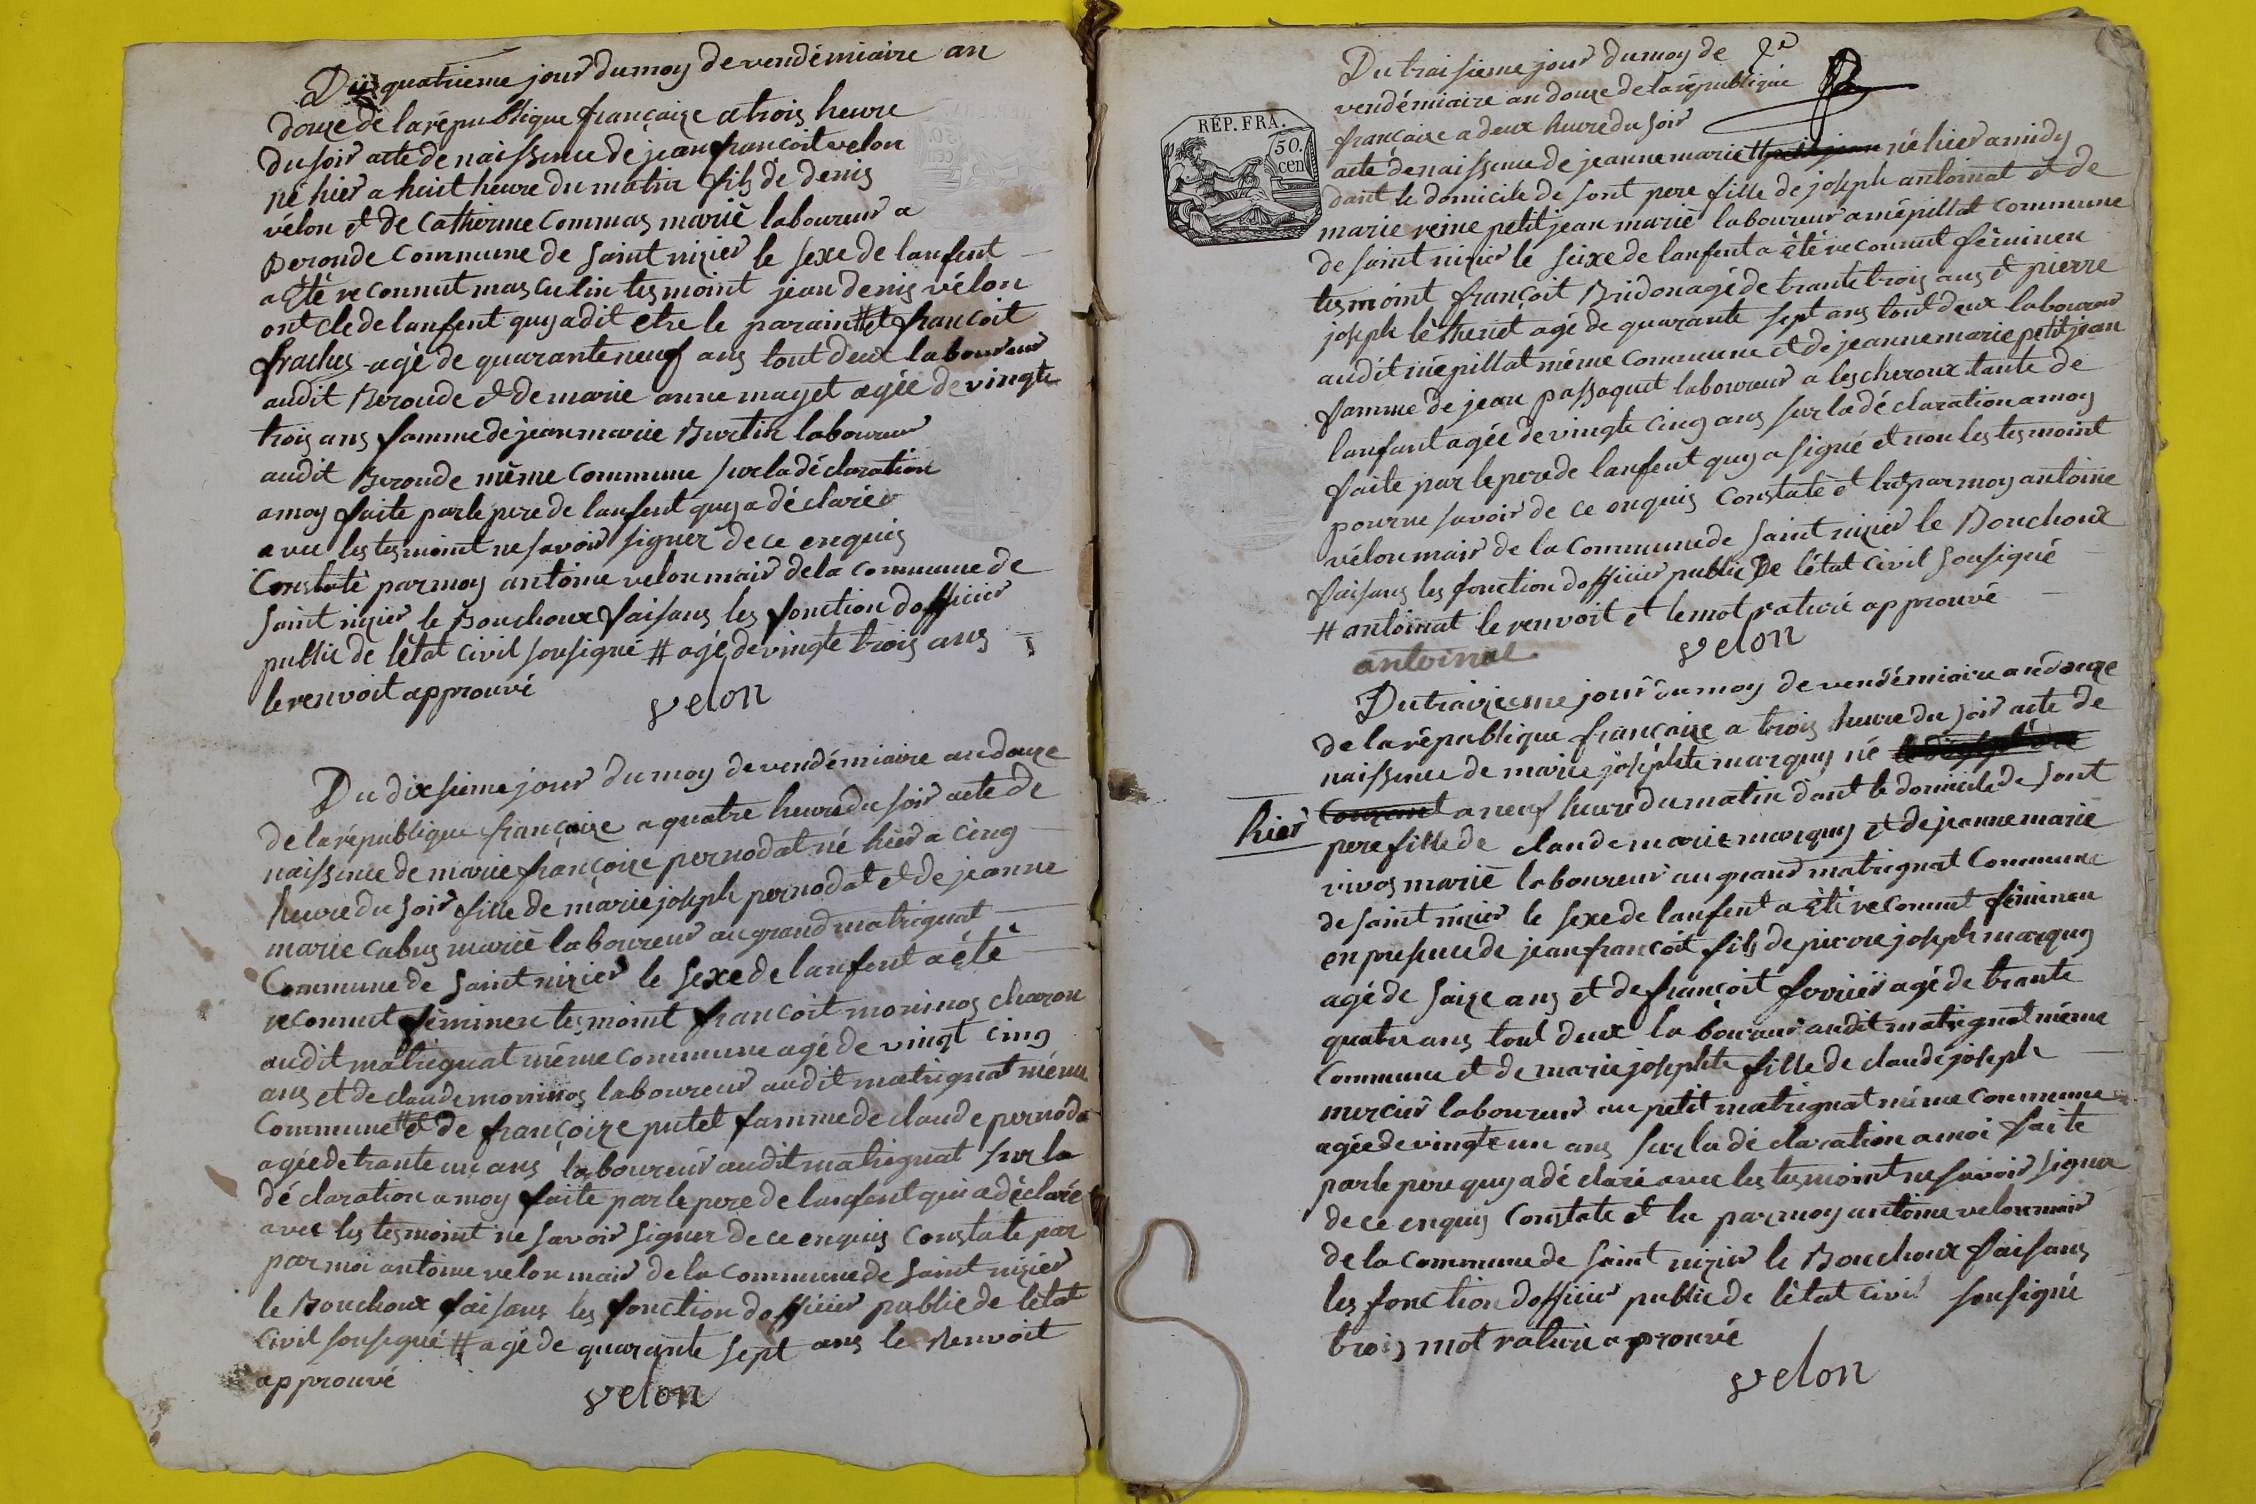 Du quatrieme jour du moy de vendémiaire an
douze de la république française a trois heure
du soir acte de naissence de jean françoit velon
né hier a huit heure du matin fils de denis
vélon et de Catherine Commas marié laboureur a
Beroude Commune de Saint nizier le sexe de lanfent
a été reconnut masculin tesmoint jean denis vélon
oncle de lanfent quy a dit etre le parain # et françoit
frachus agé de quarante neuf ans tout deux laboureur
audit Beroude et de marie anne mayet agée de vingte
trois ans famme de jean marie Burtin laboureur
audit Beroude même Commune sur la déclaration
a moy faite par le pere de lanfent quy a déclarée
avec les tesmoint ne savoir signer de ce enquis
Constaté par moy antoine velon mair de la Commune de
Saint nizier le Bouchoux faisans les fonction dofficier
public de létat Civil sousigné # agé de vingte trois ans
le renvoit approuvé
velon
Du dixsieme jour du moy de vendémiaire an douze
de la république française a quatre heure du soir acte de
naissence de marie françoize pernodat né hier a cinq
heure du soir fille de marie joseph pernodat et de jeanne
marie Cabus marié laboureur au grand matrignat
Commune de Saint nizier le sexe de lanfent a été
reconnut féminen tesmoint françoit moninos charon
audit matrignat même commune agé de vingt cinq
ans et de claude moninos laboureur audit matrignat même
Commune # et de françoize putet famme de claude pernoda
agée de trante un ans laboureur audit matrignat sur la
déclaration a moy faite par le pere de lanfent qui a déclaré
avec les tesmoint ne savoir signer de ce enquis Constate par
par moi antoine velon mair de la Commune de Saint nizier
le Bouchoux faisans les fonction dofficier public de létat
Civil sousigné # agé de quarante sept ans le Renvoit
approuvé
velon
RÉP. FRA.
50.
cen
Du traisieme jour du moy de
vendémiaire an douze de la république
française a deux heure du soir
acte de naissence de jeanne marie # petit jean né hier a midy
dant le domicile de sont pere fille de joseph antoinat et de
marie reine petit jean marié laboureur a mépillat Commune
de saint nizier le seixe de lanfent a été reconnut féminen
tesmoint françoit Bridon agé de trante trois ans et pierre
joseph lethenet agé de quarante sept ans tout deux laboureur
audit mépillat même Commune et de jeanne marie petit jean
famme de jean passaquet laboureur a lescheroux tante de
lanfant agée de vingte cinq ans sur la déclaration a moy
faite par le pere de lanfent quy a signé et non les tesmoint
pour ne savoir de ce enquis Constaté et lut par moy antoine
vélon mair de la Commune de Saint nizier le Bouchoux
faisans les fonction dofficier public De létat Civil sousigné
# antoinat le renvoit et le mot raturé approuvé
antoinat velon
Du traizieme jour du moy de vendémiaire an douze
de la république française a trois heure du soir acte de
naissence de marie joséphte marquy né
hier
Courant a neuf heure du matin dant le domicile de sont
pere fille de claude marie marquy et de jeanne marie
vivos marié laboureur au grand matrignat Commune
de saint nizier le sexe de lanfent a été reconnut féminen
en presence de jean françoit fils de pierre joseph marquy
agé de saize ans et de françoit ferrier agé de trante
quatre ans tout deux laboureur audit matrignat même
Commune et de marie josephte fille de claude joseph
mercier laboureur au petit matrignat même Commune
agée de vingte un ans sur la déclaration a moi faite
par le pere quy a déclaré avec les tesmoint ne savoir signer
de ce enquis Constate et lu par moy antoine velon mair
de la Commune de Saint nizier le Bouchoux faisans
les fonction dofficier public de létat civil sousigné
trois mot raturé aprouvé
velon